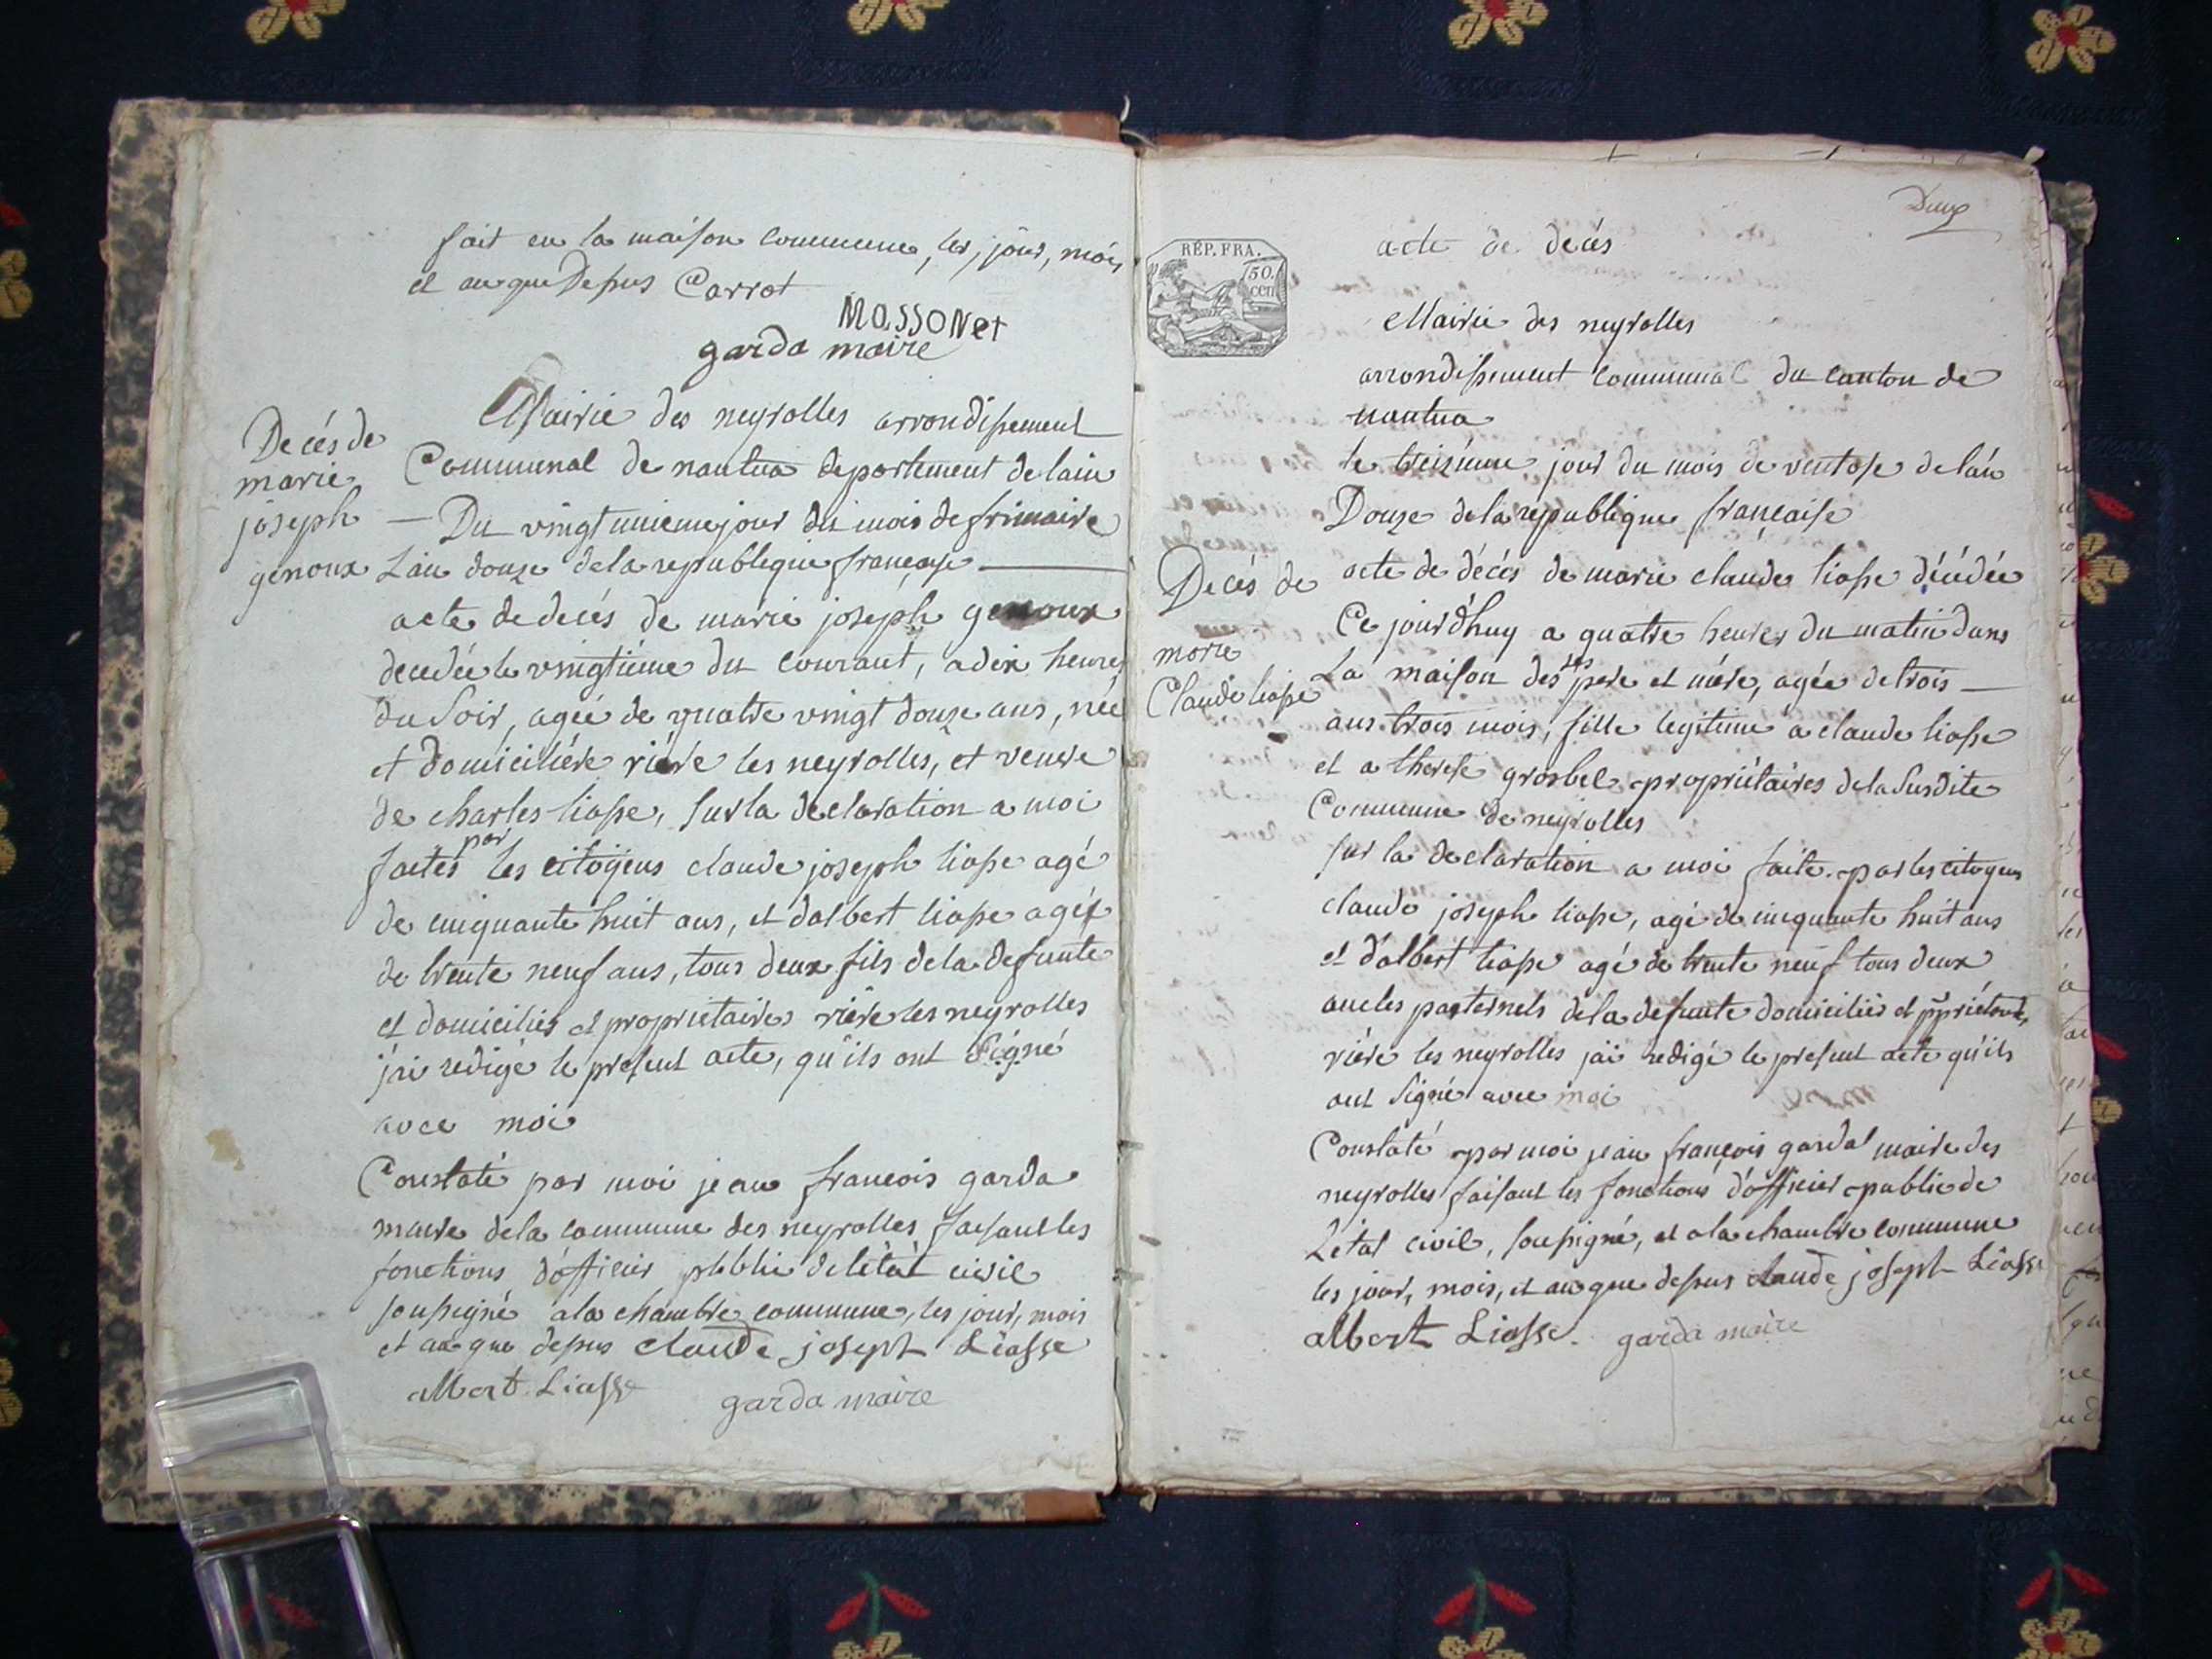 fait en la maison commune, les, jour, mois
et an que Dessus Carrot
MOSSONet
garda maire
Decés de
marie
joseph
genoux
Mairie des neyrolles arrondissement
Communal de nantua departement de lain
— Du vingt unieme jour du mois de frimaire
L'an douze de la republique française —
acte de decés de marie joseph genoux
decedée le vingtieme du courant, a dix heures
du Soir, agée de quatre vingt douze ans, née
et domiciliére riére les neyrolles, et veuve
de charles liasse, sur la declaration a moi
faites par les citoÿens claude joseph liasse agé
de cinquante huit ans, et dalbert liasse agé
de trente neuf ans, tous deux fils de la defunte
et domiciliés et proprietaires riére les neyrolles
j'ai redigé le present acte, qu'ils ont Signé
avec moi
Constaté par moi jean francois garda
maire de la commune des neyrolles faisant les
fonctions d'officier public de l'état civil
soussigné a la chambre commune, les jour, mois
et an que dessus claude joseph Liasse
albert Liasse garda maire
Deux
REP. FRA.
50.
cen
acte de decés
Mairie des neyrolles
arrondissement communal du canton de
nantua
le treizieme jour du mois de ventose de l'an
Douze de la republique française
Decés de
marie
Claude liasse
acte de décés de marie claude liasse décédée
Ce jourd'huy a quatre heures du matin dans
La maison de ses pere et mére, agée de trois —
ans trois mois, fille legitime a claude liasse
et a therese grosbel propriétaires de la Susdite
Commune de neyrolles
sur la declaration a moi faite par les citoyens
claude joseph liasse, agé de cinquante huit ans
et d'albert liasse agé de trente neuf tous deux
oncles paternels de la defunte domiciliés et
riére les neyrolles j'ai redigé le present acte qu'ils
ont Signé avec moi
Constaté par moi jean françois garda maire des
neyrolles faisant les fonctions d'officier public de
L'état civil, soussigné, et a la chambre commune
les jour, mois, et an que dessus claude joseph Liasse
albert Liasse. garda maire